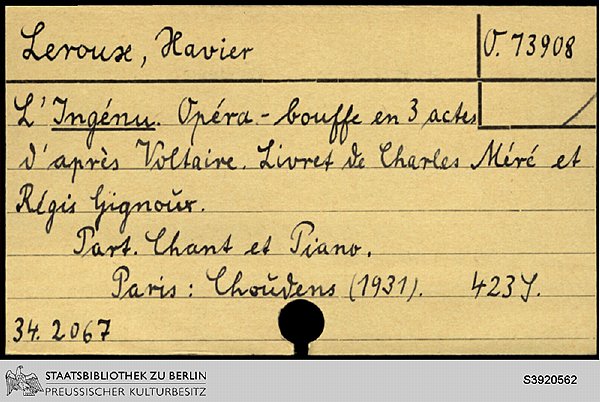 Leroux, Xavier
O. 73908
L'Ingénu. Opéra-bouffe en 3 actes
d'après Voltaire. Livret de Charles Méré et
Régis Gignoux.
Part. Chant et Piano.
Paris: Choudens (1931). 423 S.
34. 2067
STAATSBIBLIOTHEK ZU BERLIN
PREUSSISCHER KULTURBESITZ
S3920562